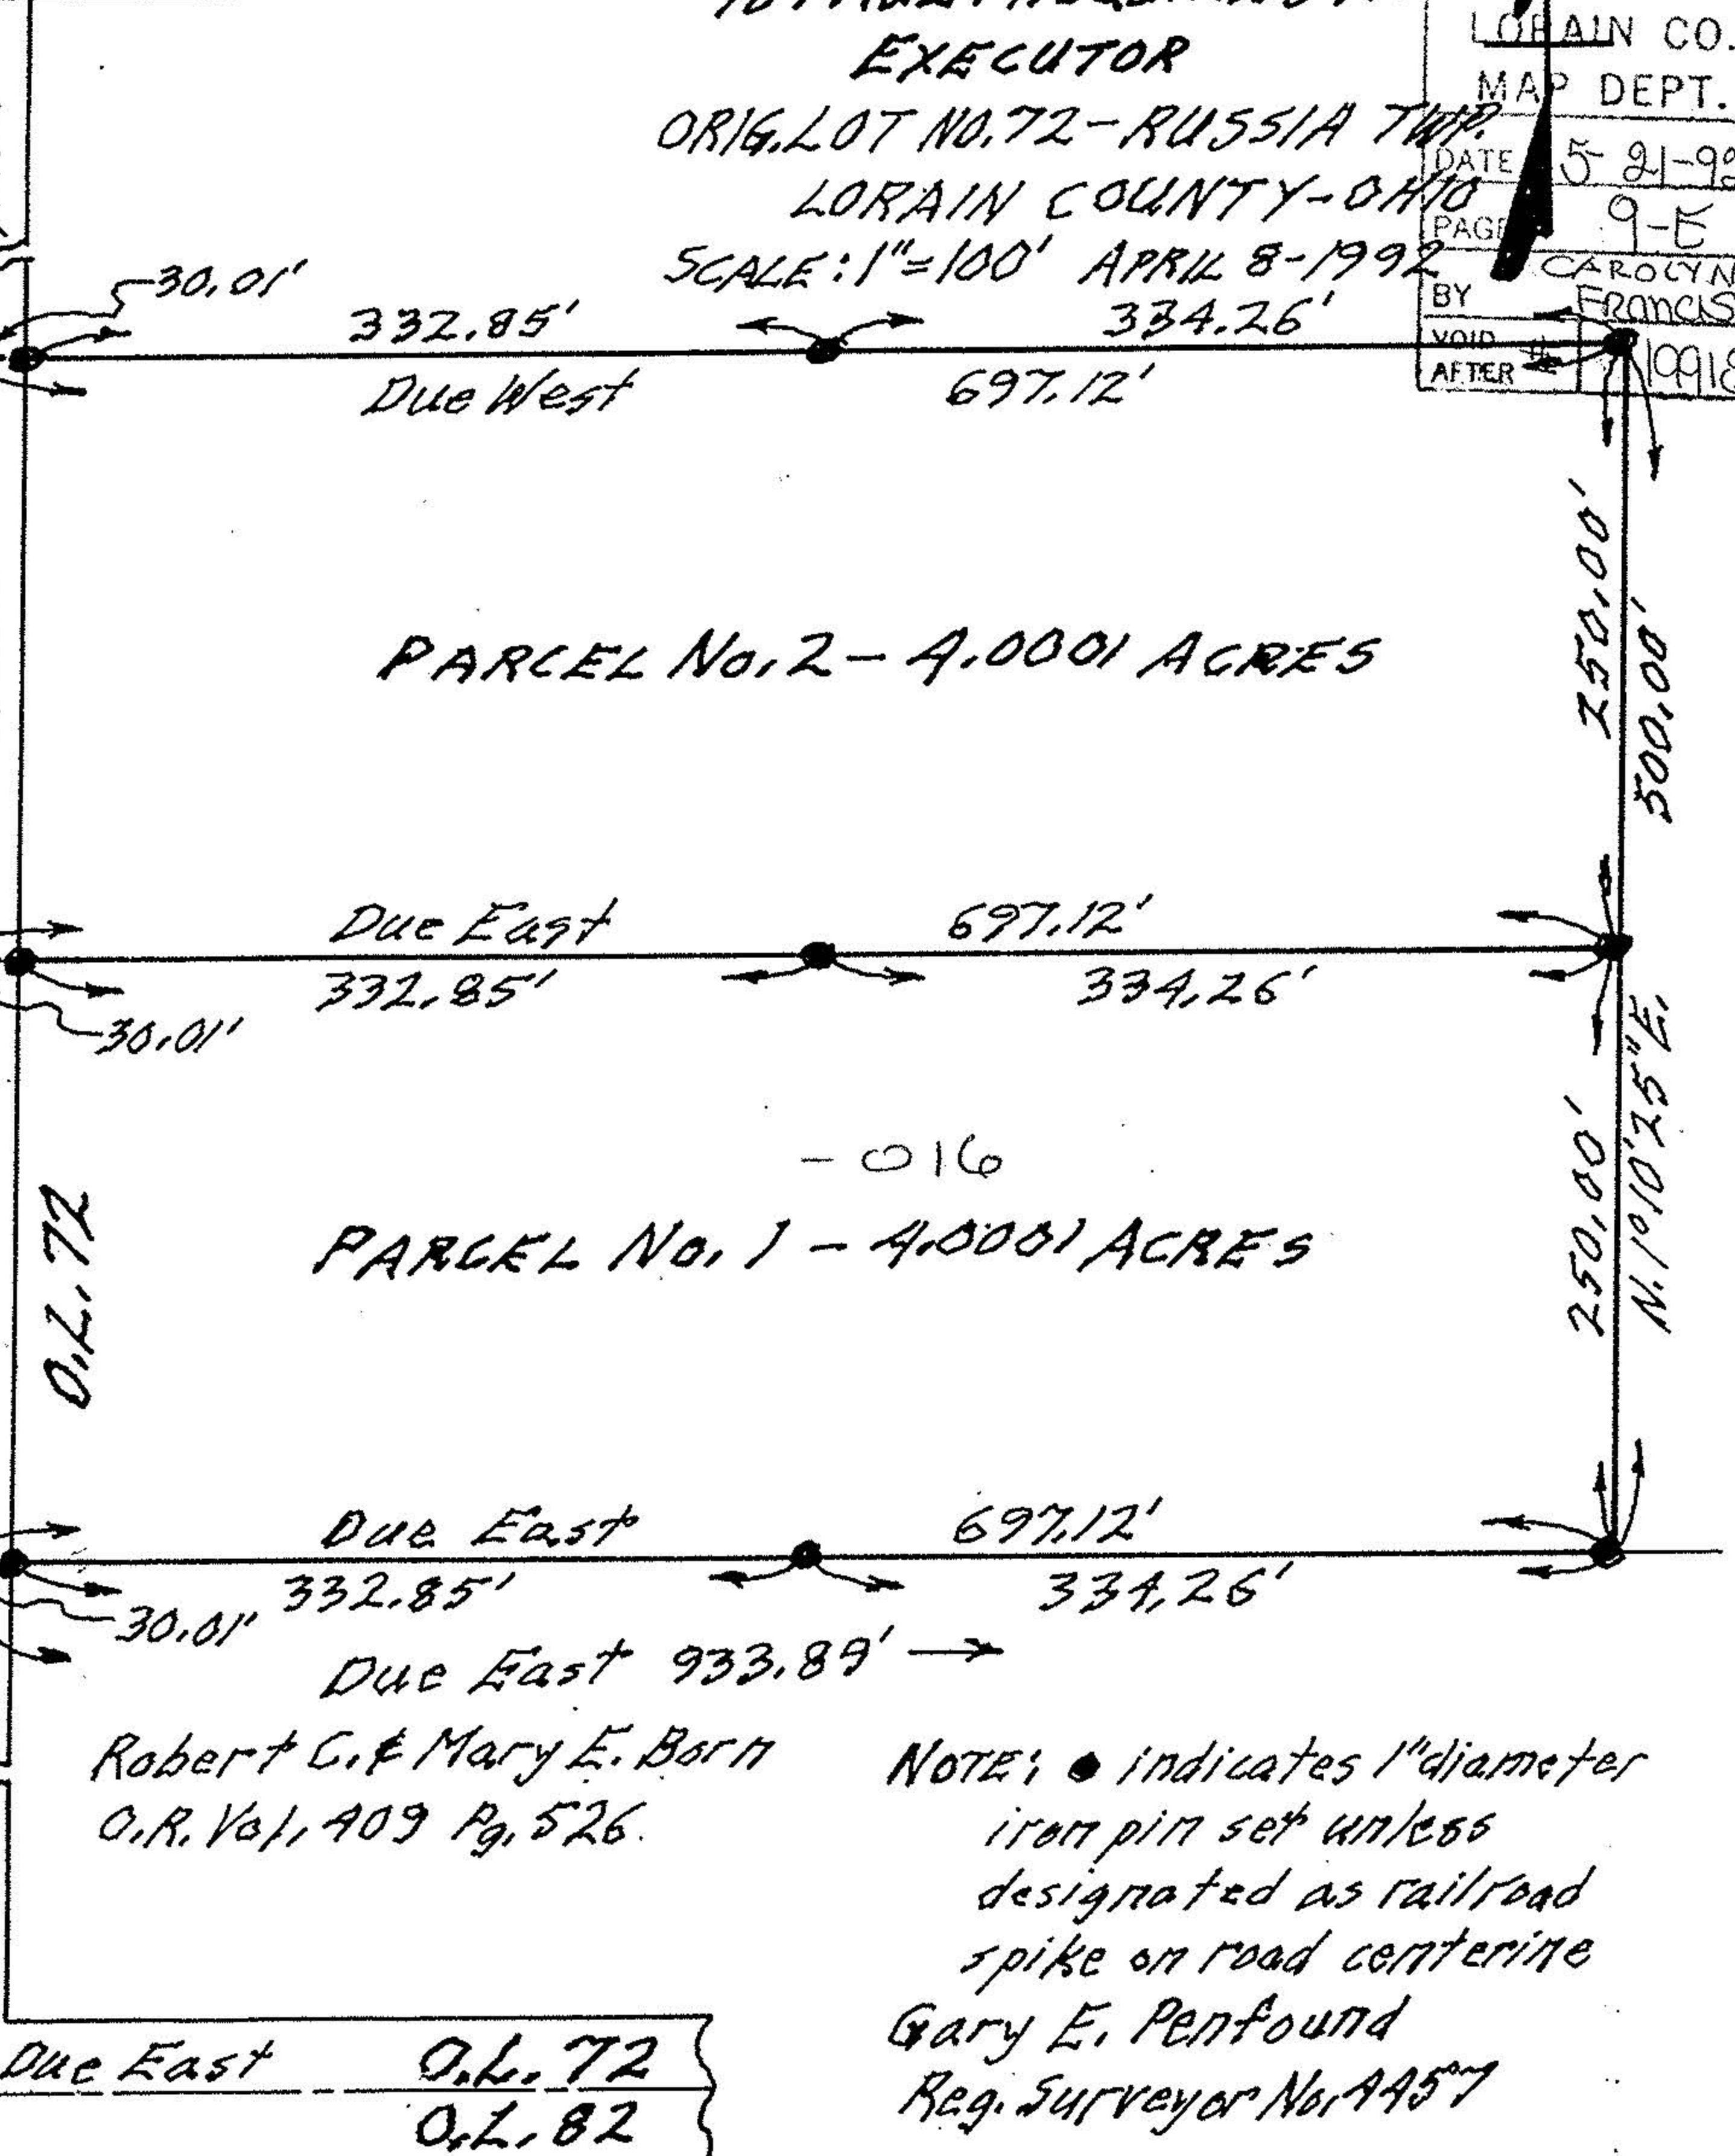 EXECUTOR
ORIG. LOT NO. 72 - RUSSIA TWP.
LORAIN COUNTY - OHIO
SCALE: 1"=100' APRIL 8-1992
LORAIN CO.
MAP DEPT.
DATE 5-21-92
PAGE 9-E
BY CAROLYN
FRANCIS
VOID
AFTER # 19918
30.01'
332.85'
334.26'
Due West
697.12'
250.00'
500.00'
PARCEL No. 2 - 4.0001 ACRES
Due East
697.12'
332.85'
334.26'
30.01'
N. 1° 10' 25" E.
250.00'
- 016
PARCEL No. 1 - 4.0001 ACRES
O.L. 72
Due East
697.12'
332.85'
334.26'
30.01'
Due East 933.89'
Robert C. & Mary E. Born
O.R. Vol. 409 Pg. 526.
NOTE: ● indicates 1" diameter
iron pin set unless
designated as railroad
spike on road centerine
Gary E. Penfound
Reg. Surveyor No. 4457
Due East
O.L. 72
O.L. 82